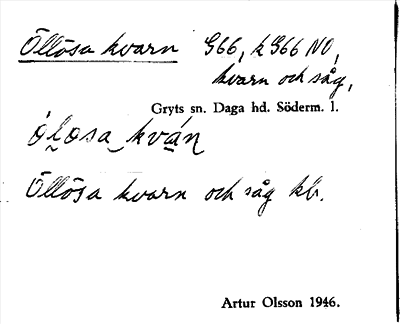 Öllösa kvarn G66, k G66 NO,
kvarn och såg,
Gryts sn. Daga hd. Söderm. l.
Öllösa kvarn och såg kb.
Artur Olsson 1946.